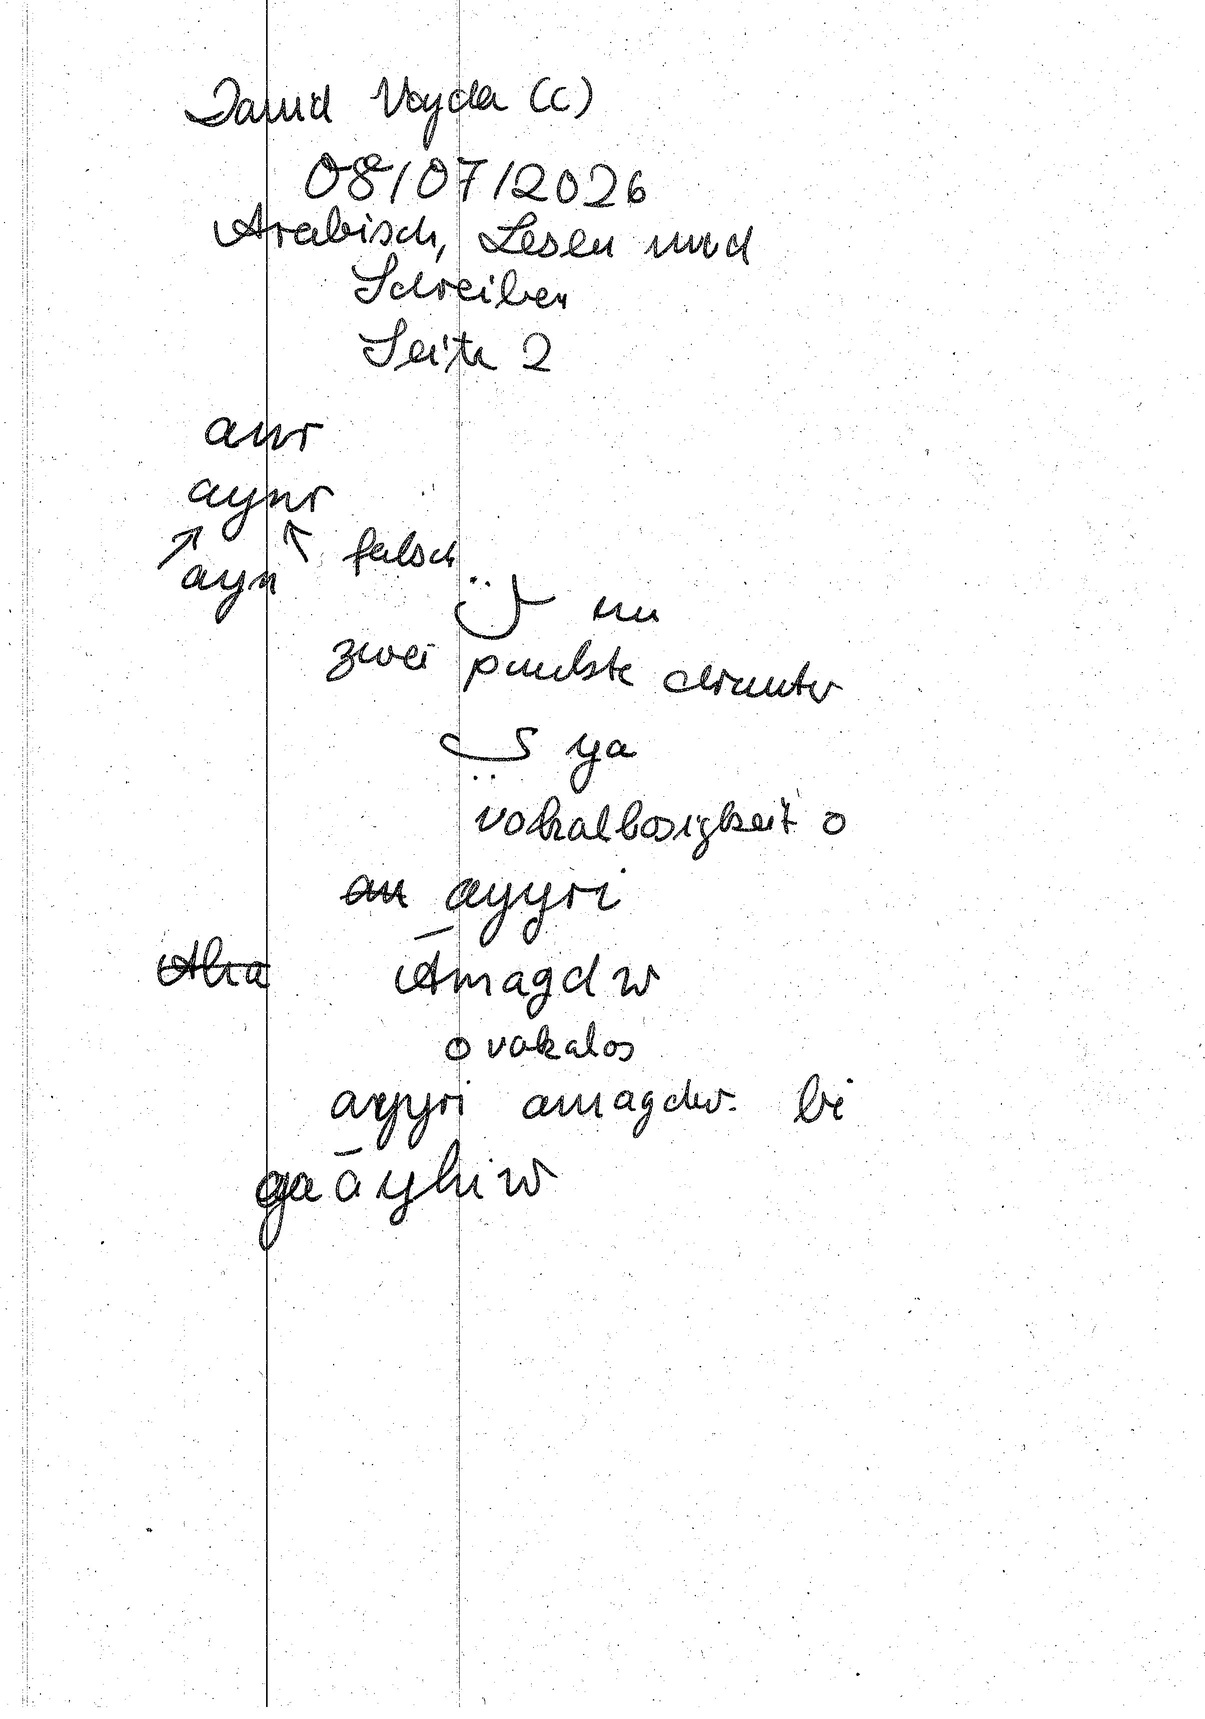 David Vajda (C)
08/07/2026
Arabisch, Lesen und
Schreiben
Seite 2
anr
aynr
falsch
ayn
zwei punkte drunter
ya
vokallosigkeit o
an ayyri
Aha Āmagdw
o vokalos
ayyri amagdw. bi
ga ā yhi w